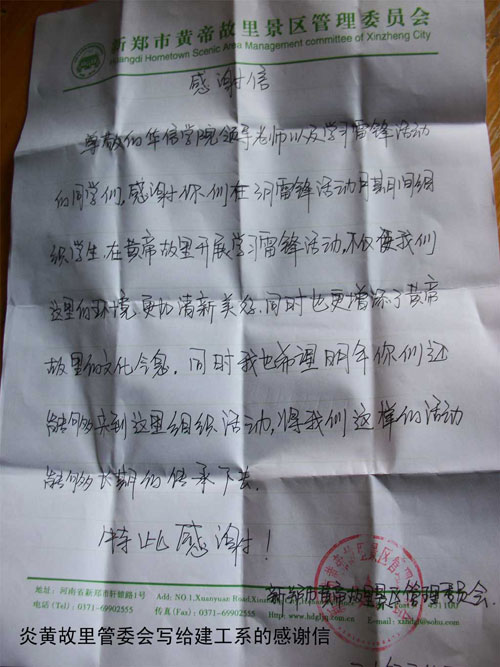 新郑市黄帝故里景区管理委员会
Huangdi Hometown Scenic Area Management committee of Xinzheng City
感谢信
尊敬的华信学院领导老师以及学习雷锋活动
的同学们,感谢你们在3月雷锋活动月期间组
织学生在黄帝故里开展学习雷锋活动,不仅使我们
这里的环境更加清新美观,同时也更增添了黄帝
故里的文化气息。同时我也希望明年你们还
能够来到这里组织活动,将我们这样的活动
能够长期的传承下去.
特此感谢!
地址:河南省新郑市轩辕路1号 Add: NO.1,Xuanyuan Road,
电话(Tel):0371-69902555 传真(Fax):0371-69902555
新郑市黄帝故里景区管理委员会.
451100
炎黄故里管委会写给建工系的感谢信